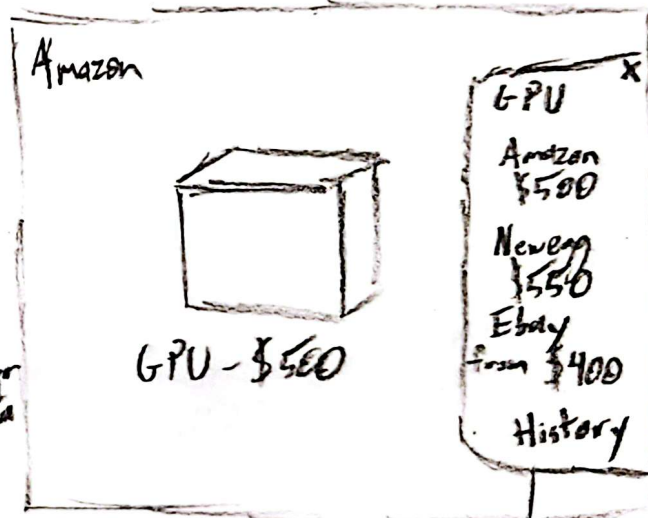 Amazon
GPU - $500
X
GPU
Amazon
$500
Newegg
$550
Ebay
from $400
History